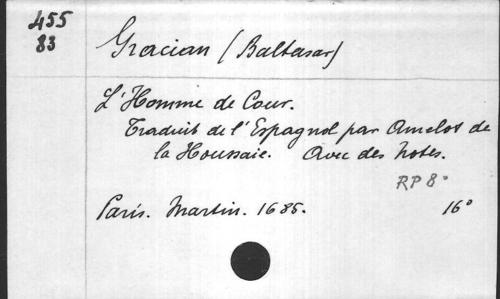 455
83
Gracian (Baltasar)
L'Homme de Cour.
Traduit de l'Espagnol par Amelot de
la Houssaie. Avec des notes.
RP 8°
Paris. Martin. 1685.
16°